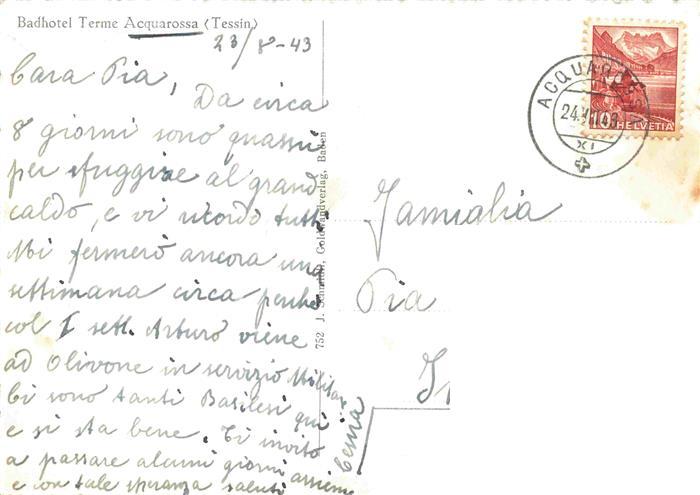 Badhotel Terme Acquarossa (Tessin)
23/8-43
Cara Pia,
Da circa
8 giorni sono quassù
per sfuggire al grand
caldo, e vi ricordo tutti
Mi fermerò ancora una
settimana circa perché
col I sett. Arturo viene
ad Olivone in servizio Militare
Ci sono tanti Basilesi qui
e si sta bene. Ti invito
a passare alcuni giorni assieme
e con tale speranza saluti
752 J. Goldwandverlag, Baden
ACQUAROSSA
24.VIII.43
XI
HELVETIA
Famiglia
Pia